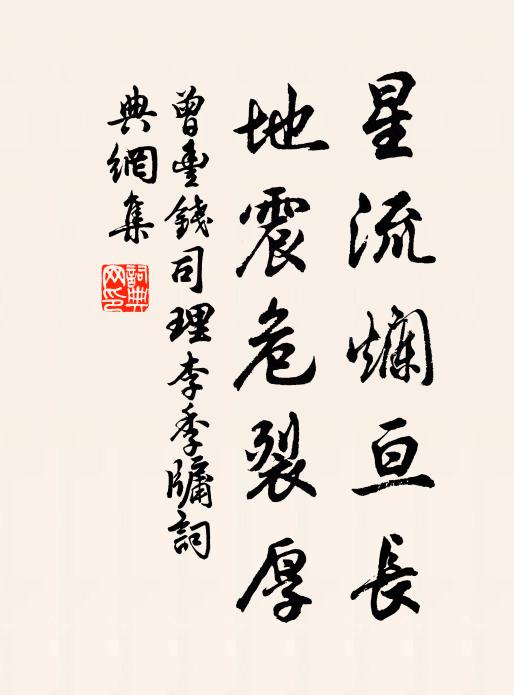 星流爛亘長
地震危裂厚
曾豊錢司理李季牗詞
典網集
詞典网印